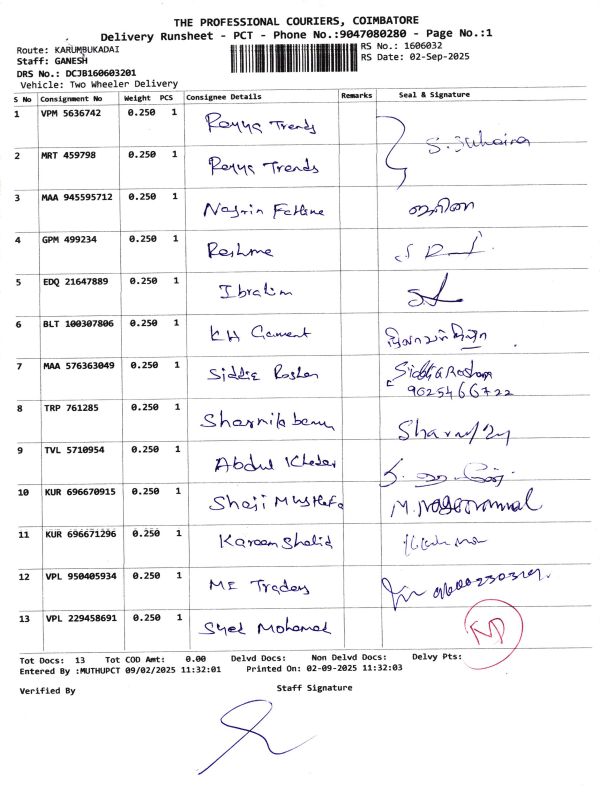 THE PROFESSIONAL COURIERS, COIMBATORE
Delivery Runsheet - PCT - Phone No.:9047080280 - Page No.:1
Route: KARUMBUKADAI
RS No.: 1606032
Staff: GANESH
RS Date: 02-Sep-2025
DRS No.: DCJB160603201
Vehicle: Two Wheeler Delivery
S No Consignment No Weight PCS Consignee Details Remarks Seal & Signature
1 VPM 5636742 0.250 1 Trends
2 MRT 459798 0.250 1 Trends
3 MAA 945595712 0.250 1
4 GPM 499234 0.250 1 Reshma
5 EDQ 21647889 0.250 1 Ibrahim
6 BLT 100307806 0.250 1 KH Garment
7 MAA 576363049 0.250 1 Roshan
9025466722
8 TRP 761285 0.250 1
9 TVL 5710954 0.250 1 Abdul Khedar
10 KUR 696670915 0.250 1 Shaji Mustafa
11 KUR 696671296 0.250 1 Kareem
12 VPL 950405934 0.250 1 Traders
13 VPL 229458691 0.250 1 Syed Mohamed ND
Tot Docs: 13 Tot COD Amt: 0.00 Delvd Docs: Non Delvd Docs: Delvy Pts:
Entered By :MUTHUPCT 09/02/2025 11:32:01 Printed On: 02-09-2025 11:32:03
Verified By Staff Signature